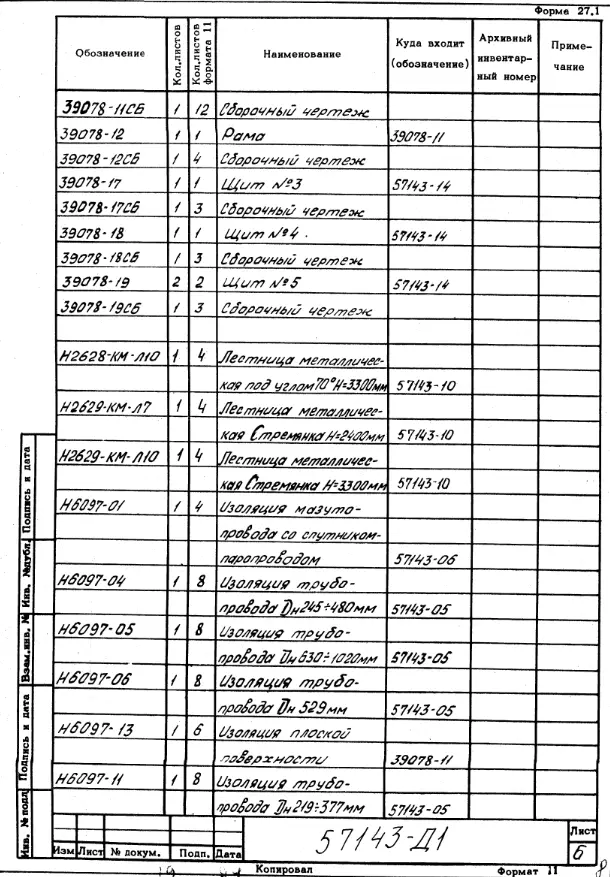 Форма 27.1
Обозначение Кол.листов Кол.листов формата 11 Наименование Куда входит (обозначение) Архивный инвентарный номер Примечание
39078-11СБ 1 12 Сборочный чертеж
39078-12 1 1 Рама 39078-11
39078-12СБ 1 4 Сборочный чертеж
39078-17 1 1 Щит №3 57143-14
39078-17СБ 1 3 Сборочный чертеж
39078-18 1 1 Щит №4. 57143-14
39078-18СБ 1 3 Сборочный чертеж
39078-19 2 2 Щит №5 57143-14
39078-19СБ 1 3 Сборочный чертеж
Н2628-КМ-Л10 1 4 Лестница металличес-
кая под углом 70° Н=3300мм 57143-10
Н2629-КМ-Л7 1 4 Лестница металличес-
кая Стремянка Н=2400мм 57143-10
Н2629-КМ-Л10 1 4 Лестница металличес-
кая Стремянка Н=3300мм 57143-10
Н6097-01 1 4 Изоляция мазуто-
провода со спутником-
паропроводом 57143-06
Н6097-04 1 8 Изоляция трубо-
провода Dн245÷480мм 57143-05
Н6097-05 1 8 Изоляция трубо-
провода Dн630÷1020мм 57143-05
Н6097-06 1 8 Изоляция трубо-
провода Dн 529мм 57143-05
Н6097-13 1 6 Изоляция плоской
поверхности 39078-11
Н6097-11 1 8 Изоляция трубо-
провода Dн219÷377мм 57143-05
Инв. № подл. Подпись и дата Взам.инв. № Инв. №дубл. Подпись и дата
57143-Д1
Лист
6
Изм Лист № докум. Подп. Дата
Копировал Формат 11
8